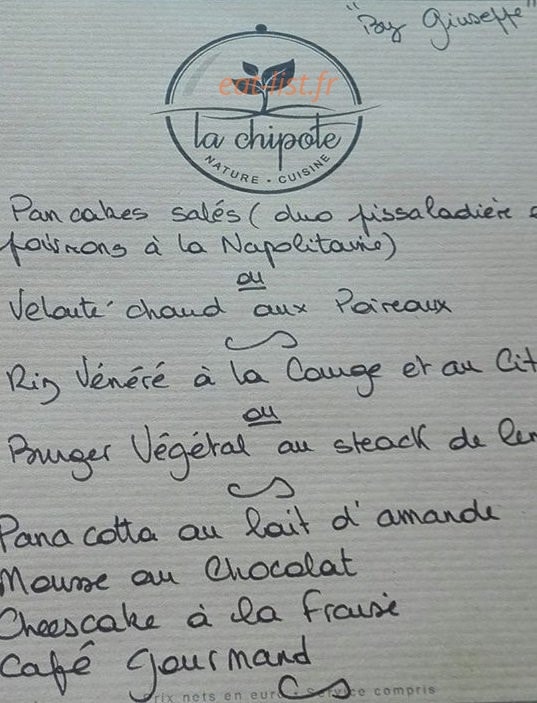 "By Giuseppe"
eat-list.fr
la chipote
NATURE - CUISINE
Pancakes salés (duo pissaladière
poivrons à la Napolitaine)
ou
Velouté chaud aux Poireaux
Riz Vénéré à la Courge et au Cit
ou
Burger Végétal au steack de len
Pana cotta au lait d'amande
Mousse au Chocolat
Cheescake à la Fraise
Café gourmand
Prix nets en eur Service compris